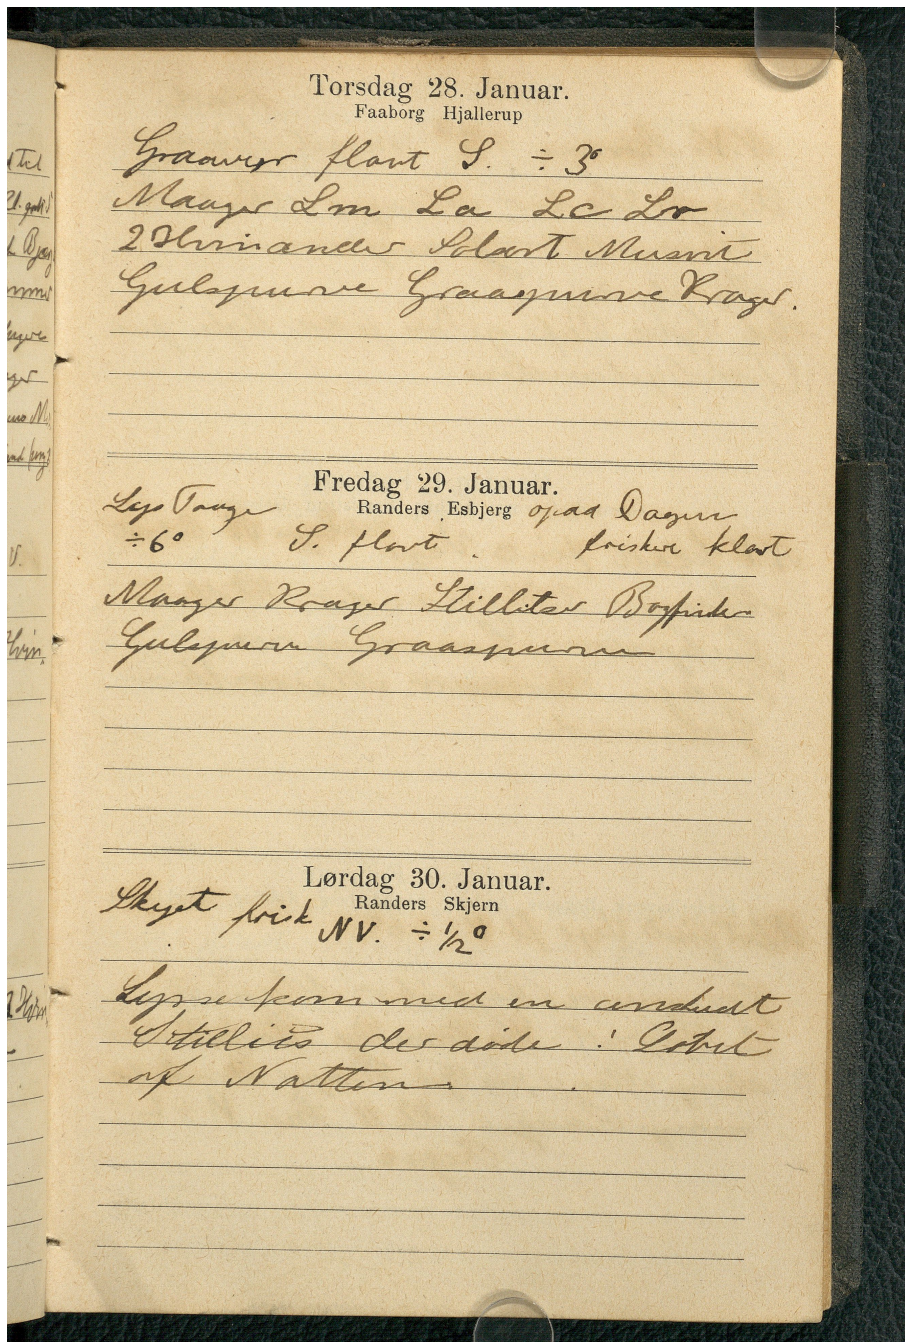 Torsdag 28. Januar.
Faaborg Hjallerup
Graavejr flovt S. ÷ 3°
Maager Lm La Lc Lr
2 Hvinander Solsort Musvit
Gulspurve Graaspurve Krager.
Fredag 29. Januar.
Lys Taage Randers Esbjerg opad Dagen
÷6° S. flovt. friskere klart
Maager Krager Stillitser Bogfinker
Gulspurve Graaspurve
Lørdag 30. Januar.
Randers Skjern
Skyet frisk NV. ÷ 1/2°
kom med en anskudt
Stillits der døde i Løbet
af Natten.